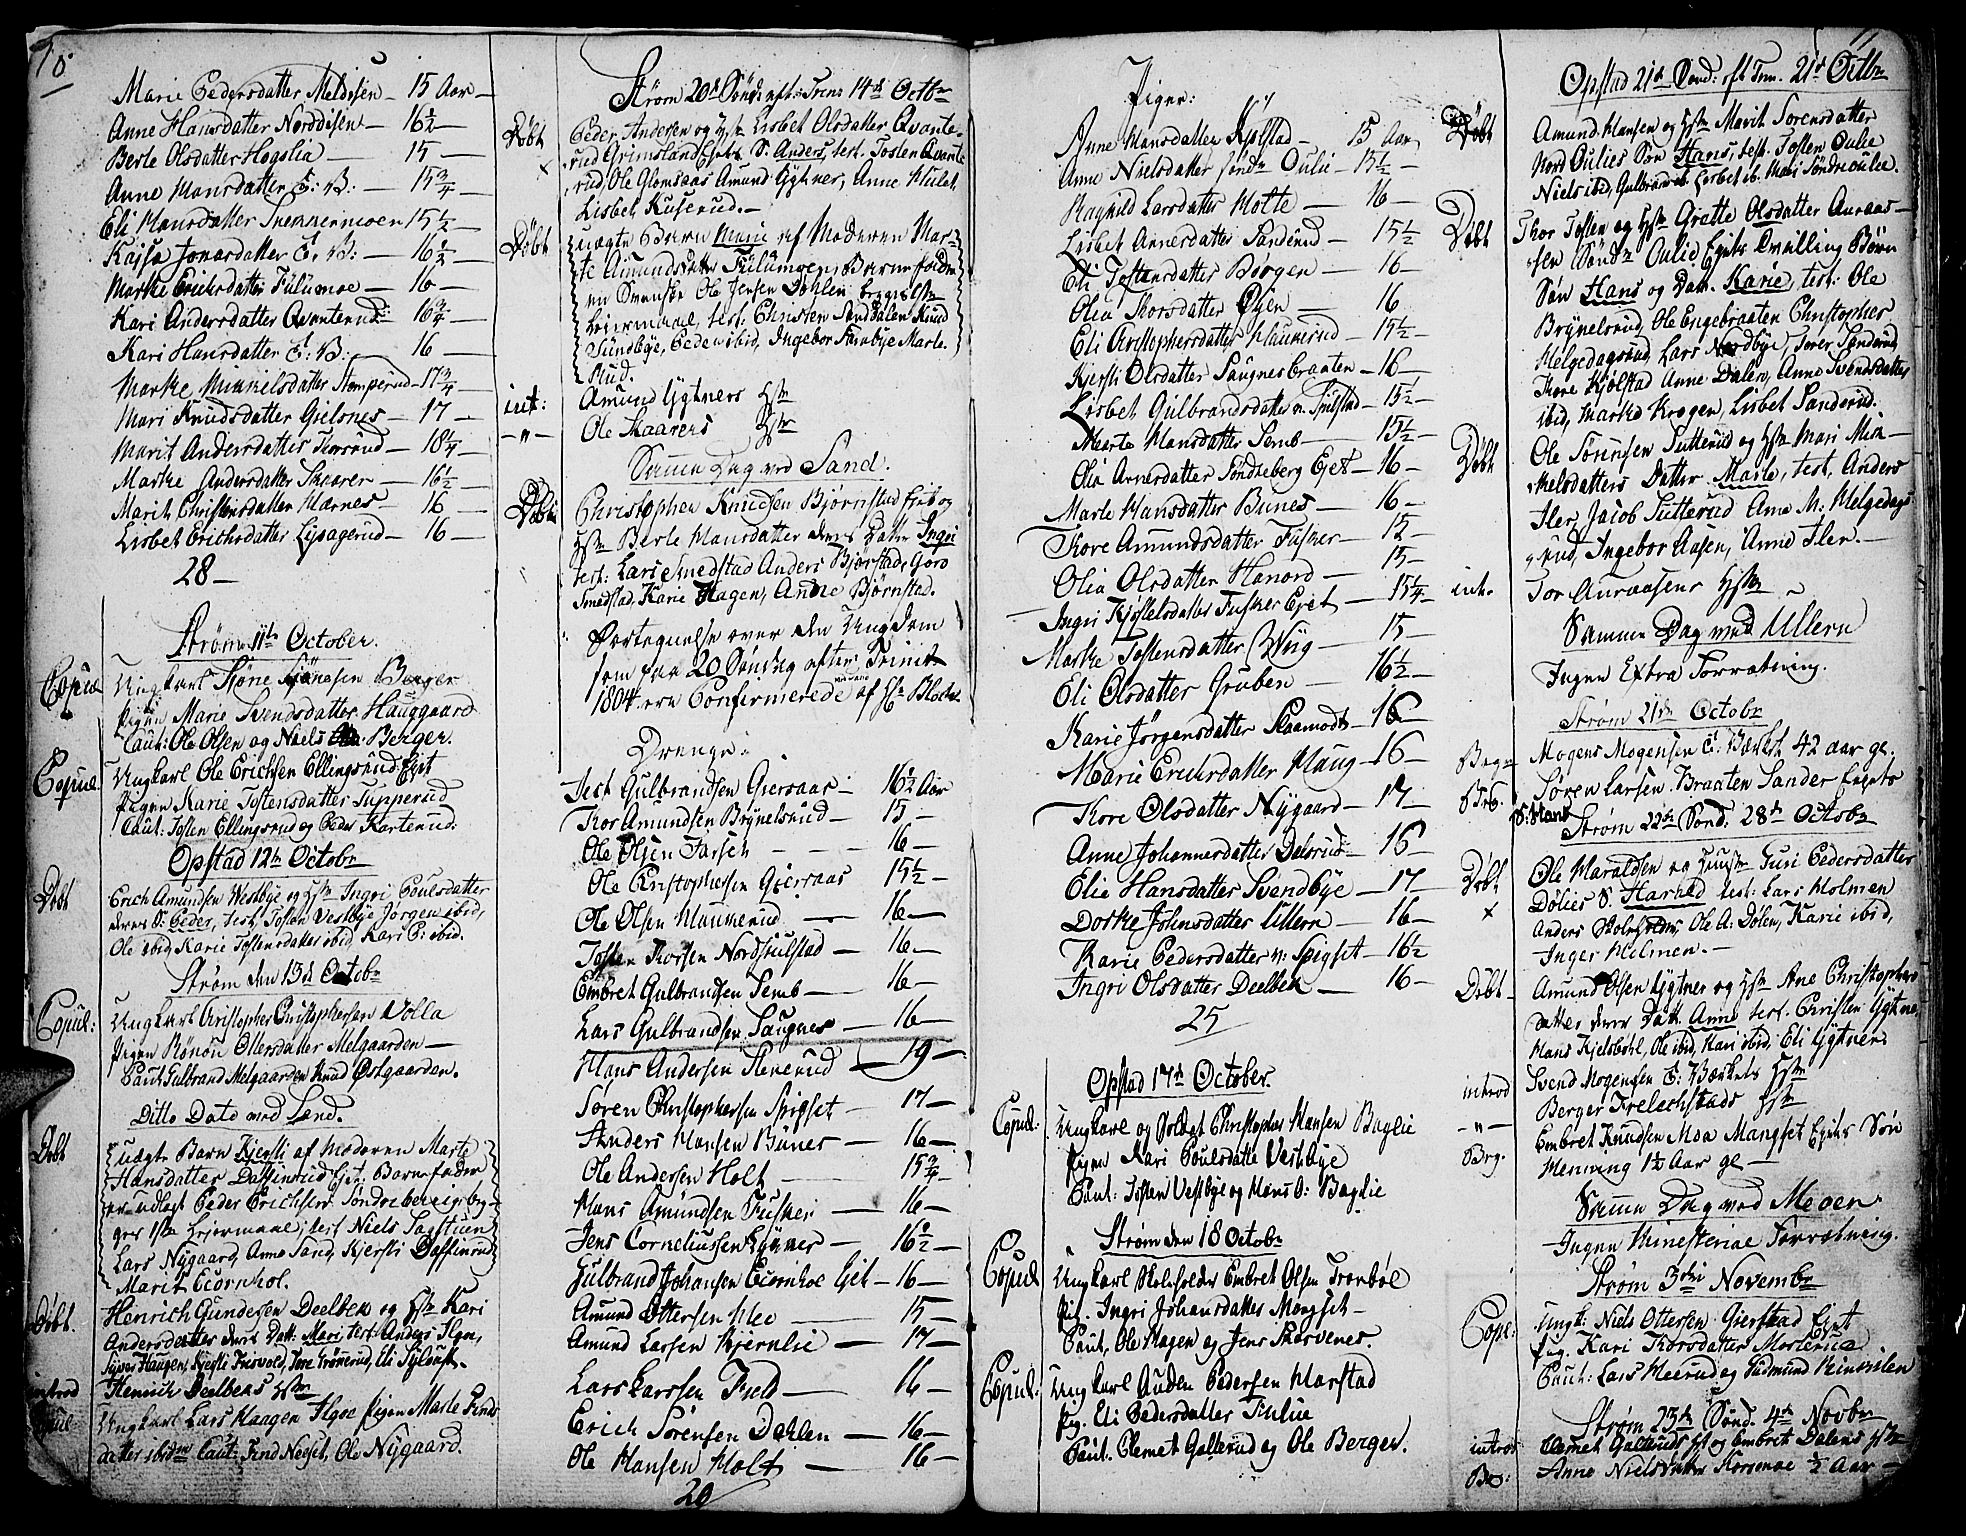 10
Marie Pedersdatter Meldisen — 15 Aar —
Anne Hansdatter Norddisen — 16½ —
Berte Olsdatter Hogslia — 15 —
Anne Hansdatter E: B: — 15¾ —
Eli Hansdatter Svennermoen 15½ —
Kajsa Jonasdatter E. B: — 16½ —
Marthe Erichsdatter Fulumoe — 16 —
Kari Andersdatter Qvanterud: 16¾ —
Kari Hansdatter E: B: — 16 —
Marthe Mikkelsdatter Stomperud — 17¾ —
Mari Knudsdatter Gielsnes — 17 —
Marit Andersdatter Korsrud — 18¼ —
Marthe Andersdatter Skarer — 16½ —
Marit Christensdatter Harnes — 16 —
Lisbet Erichsdatter Lysagerud — 16 —
28 —
Strøm 11te October.
Copul Ungkarl Tjøne Tjønesen Berger
Pigen Marie Svendsdatter Hauggaard
Caut: Ole Olsen og Niels Berger.
Copul. Ungkarl Ole Erichsen Ellingsrud Ejet
Pigen Karie Tostensdatter Tupperud
Caut: Tosten Ellingsrud og Peder Karterud:
Opstad 12te Octobr
Døbt Erich Amundsen Westbye og Hstr Ingri Poulsdatter
deres S: Peder, test. Tosten Vestbye Jørgen ibid,
Ole ibid Karie Tostensdatter ibid Kari P: ibid.
Strøm den 13de Octobr
Copul: Ungkarl Christopher Christophersen Volla
Pigen Rønou Ottersdatter Melgaarden —
Caut. Gulbrand Melgaarden Knud Østgaarden.
Ditto Dato ved Sand.
Døbt uægte Barn Kjersti af Moderen Marte
Hansdatter Daffinrud Ejet. Barnefader
er udlagt Peder Erichsen Søndre bereig by-
ges 1ste Leiermaal; test Niels Sagstuen
Lars Nygaard, Anne Sand, Kjersti Daffinrud
Marit Ecornhol.
Døbt. Henrich Gundersen Deelbek og Hstr Kari
Andersdatter deres Datt: Mari test. Anders Ilgoe,
Syver Haugen, Kjersti Frisvold, Tore Grønerud, Eli Sylvust.
introd Henrich Deelbeks Hstr
Copul Ungkarl Lars Haagen Ilgoe Pigen Marte Finds
datter ibidm Caut: Find Neeset, Ole Nygaard.
Strøm 20de Sønd: eft: Trin: 14de Octbr
Døbt Peder Andersen og Hstr Lisbet Olsdatter Qvante-
rud Grimslandsejets S: Anders, test. Tosten Qvante
rud, Ole Glomsaas Amund Lygtner, Anne Mulet,
Lisbet Kuserud. —
Døbt uægte Barn Marie af Moderen Mar-
te Amundsdatter Fulumoen; Barnefader
en Svenske Ole Jensen Dahlen begges 1ste
Leiermaal, test: Christen Sanddalen Knud
Sundbye, Peder ibid, Ingebor Farebye Marte.
Rud.
int: Amund Lygtners Hstr
— " — Ole Skarers Hstr
Samme Dag ved Sand.
Døbt: Christopher Knudsen Bjørnstad Ejet og
Hstr Berte Hansdatter deres Datter Ingri
test: Lars Smedstad Anders Bjørstad, Goro
Smedstad, Karie Hagen, Anne Bjørnstad.
Fortegnelse over den Ungdom
som paa 20 Søndag efter Trinit
1804 ere Confirmerede af Hr Bloch
Drenge:
Test Gulbrandsen Giersaas — 16½ Aar
Thor Amundsen Brynelsrud — 15 —
Ole Olsen Farsen — — — 16 —
Ole Cristophersen Gierraas 15½ —
Ole Olsen Maumerud — 16 —
Tosten Thorsen Nordsjulstad — 16 —
Embret Gulbrandsen Semb — 16 —
Lars Gulbrandsen Saugnes — 16 —
Hans Andersen Skeverud — 19 —
Søren Christophersen Spigset — 17 —
Anders Hansen Bunes — 16 —
Ole Andersen Holt — 15¾ —
Hans Amundsen Fusker — 16 —
Jens Corneliussen Lykner — 16½ —
Gulbrand Johansen Ecornhoe Ejet — 16 —
Amund Ottersen Moe — 15 —
Amund Larsen Kjernlie — 17 —
Lars Larssen Field — 16 —
Erich Sørensen Dahlen — 16 —
Ole Hansen Holt — 16 —
20
11
Piger:
Anne Hansdatter Kjølstad — 15 Aar
Anne Nielsdatter søndr Oulie — 15½ —
Ragnild Larsdatter Holte — 16 —
Lisbet Arnersdatter Sanderud — 15½
Eli Tostensdatter Børgen — 16 —
Olia Thorsdatter Øyen — 16
Eli Cristophersdatter Maumrud — 15½ —
Kjersti Olsdatter Saugnesbraaten — 16 —
Lisbet Gulbrandsdatter n. Sjulstad — 15½ —
Marte Hansdatter Semb — 15½ —
Olia Arnersdatter Søndreberg Ejet — 16 —
Marte Hansdatter Bunes — 16 —
Thore Amundsdatter Fusker — 15 —
Olia Olsdatter Hanord — 15 —
Ingri Kjøstelsdatter Fusker Ejet — 15¼ —
Marthe Tostensdatter Wiig — 15 —
Eli Olsdatter Gruben — 16½ —
Karie Jørgensdatter Skaamodt — 16 —
Marie Erichsdatter Haug — 16 —
Thore Olsdatter Nygaard — 17 —
Anne Johannesdatter Delsrud — 16 —
Elie Hansdatter Svendbye — 17 —
Dorthe Johnsdatter Ullern — 16 —
Karie Pedersdatter n: Spigset — 16½
Ingri Olsdatter Deelbek — 16 —
25
Opstad 17de October.
Copul: Ungkarl og Soldat Christopher Hansen Baglie
Pigen Kari Poulsdatter Vestbye
Caut: Tosten Vestbye og Hans O: Baglie
Strøm den 18 Octobr
Copul Ungkarl Skoleholder Embret Olsen Trønbøl
Pig. Ingri Johansdatter Mangset —
Caut, Ole Hagen og Jens Skarvenes.
Copul: Ungkarl Guden Pedersen Harstad
Pig. Eli Pedersdatter Fulue
Caut. Clemet Galterud og Ole Berger.
Opstad 21de Sønd: eft Trin. 21de Octbr
Døbt Amund Hansen og Hstr Marit Sorensdatter
Nord Oulies Søn Hans, test. Tosten Oulie
Niels ibid, Gulbrand ib. Lisbet ib. Mari Søndreoulie.
Døbt Thor Tosten og Hstr Grette Olsdatter Auraas-
sen Søndr Oulie Ejets Tvilling Børn
Søn Hans og Dat. Karie, test: Ole
Brynelsrud, Ole Engebraaten Christopher
Helgedagsrud, Lars Nordbye, Torer Sanderud
Thore Kjølstad Anne Dalen, Anne Svendsdatter
ibid, Marthe Krogen, Lisbet Sanderud.
Døbt Ole Sørensen Sutterud og Hstr Mari Mik-
kelsdatters Datter Marte, test. Anders
Iler, Jacob Sutterud Anne M: Helgedags
rud, Ingebor Aasen, Anne Iler. —
int. Tor Auraasens Hstr
Samme Dag ved Ullern
Ingen Extra Forretning.
Strøm 21de Octobr
Begr Mogens Mogensen E: Værket 42 aar gl.
Søren Larsen Braaten Sander Ejets
S: Hans
Strøm 22de Sønd: 28de Octobr
Døbt Ole Haraldsen og Hustr Guri Pedersdatter
Dølies S. Harald test: Lars Holmen
Anders Skoleholder, Ole A: Dølen, Karie ibid,
Inger Holmen. —
Døbt — Amund Olsen Lygtner og Hstr Ane Christophers
datter deres Datt. Anne test. Christen Lygtner
Hans Kjelsbohl, Ole ibid, Kari ibid, Eli Lygtner.
introd Svend Mogensen E: Værkets Hstr
— " — Berger Frelechstads Hstr
Brg. Embret Knudsen Moa Mangset Ejets Søn
Henning 1½ Aar gl —
Samme Dag ved Moen
Ingen Ministeriae Forretning.
Strøm 3die Novembr
Cop: Ungk: Niels Ottersen Gierstad Ejet
Pig. Kari Thorsdatter Mosterud
Caut: Lars Meerud og Gudmund
Strøm 23de Sønd. 4de Novbr
introd Clemet Galteruds Hst og Embret Dalens Hstr
Be: Anne Nielsdatter Korsmoe ½ Aar —